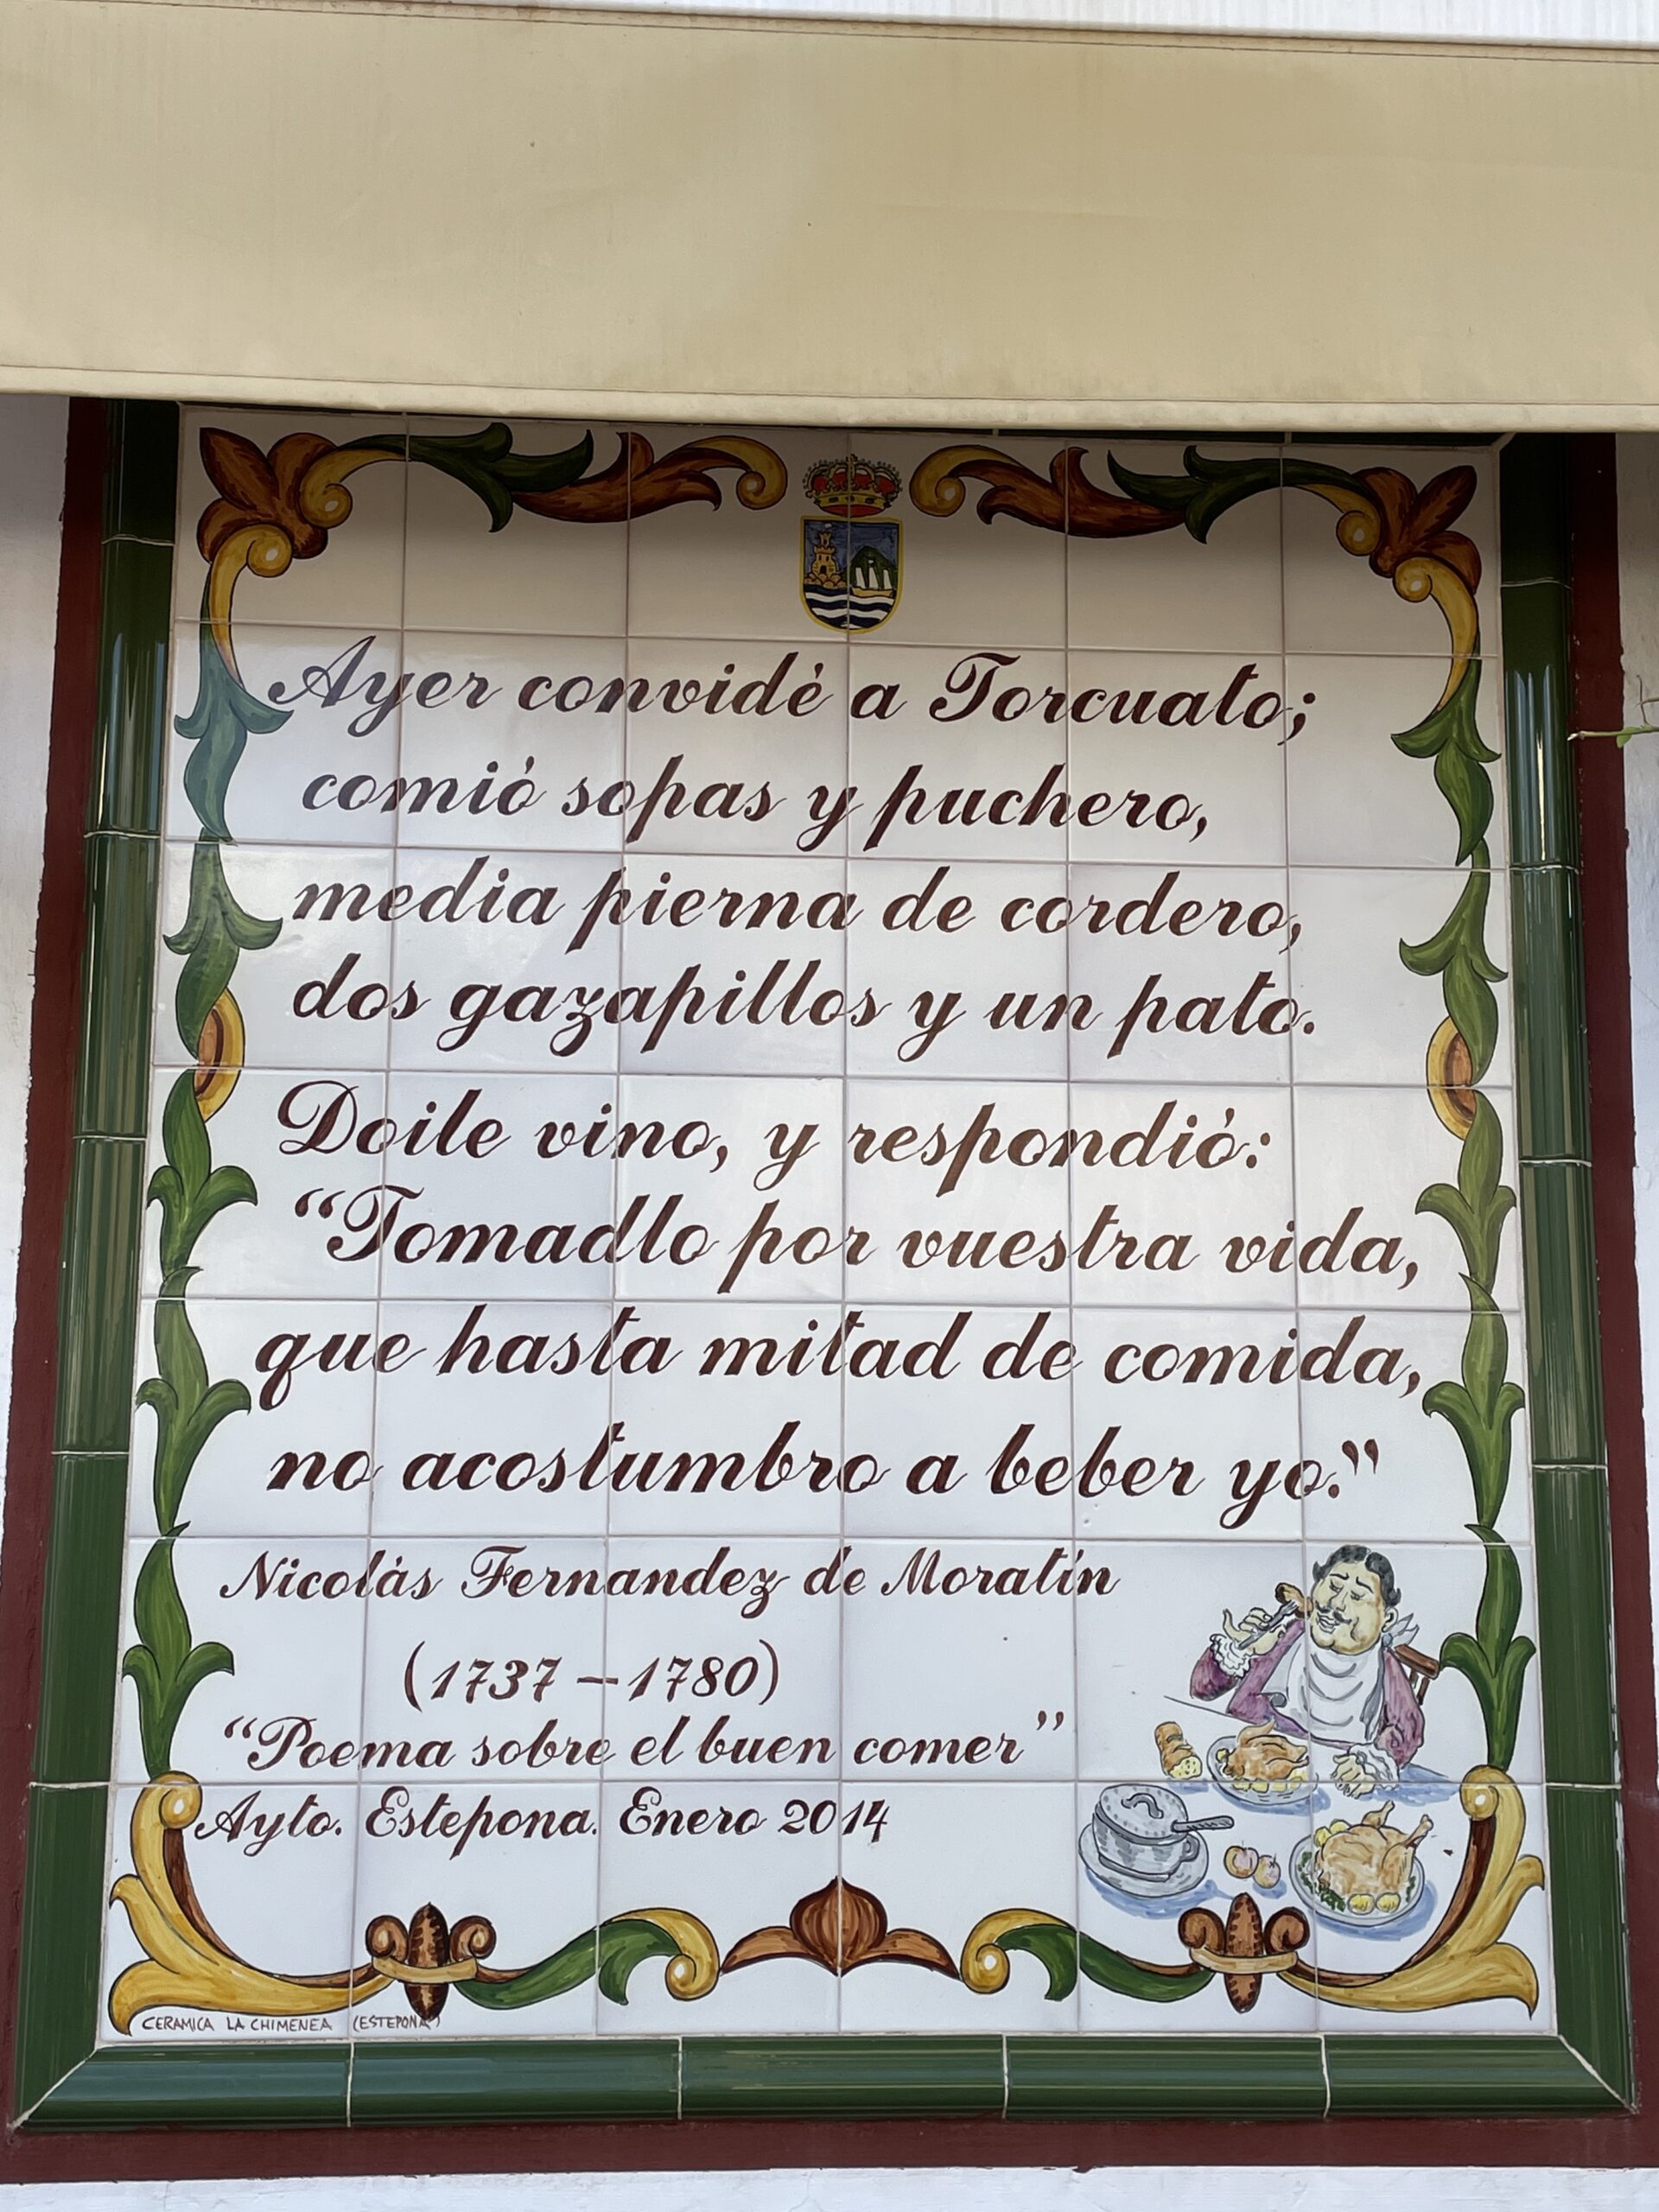 Ayer convidé a Torcuato;
comió sopas y puchero,
media pierna de cordero,
dos gazapillos y un pato.
Doile vino, y respondió:
“Tomadlo por vuestra vida,
que hasta mitad de comida,
no acostumbro a beber yo.”
Nicolás Fernandez de Moratín
(1737 – 1780)
“Poema sobre el buen comer”
Ayto. Estepona. Enero 2014
CERAMICA LA CHIMENEA (ESTEPONA)